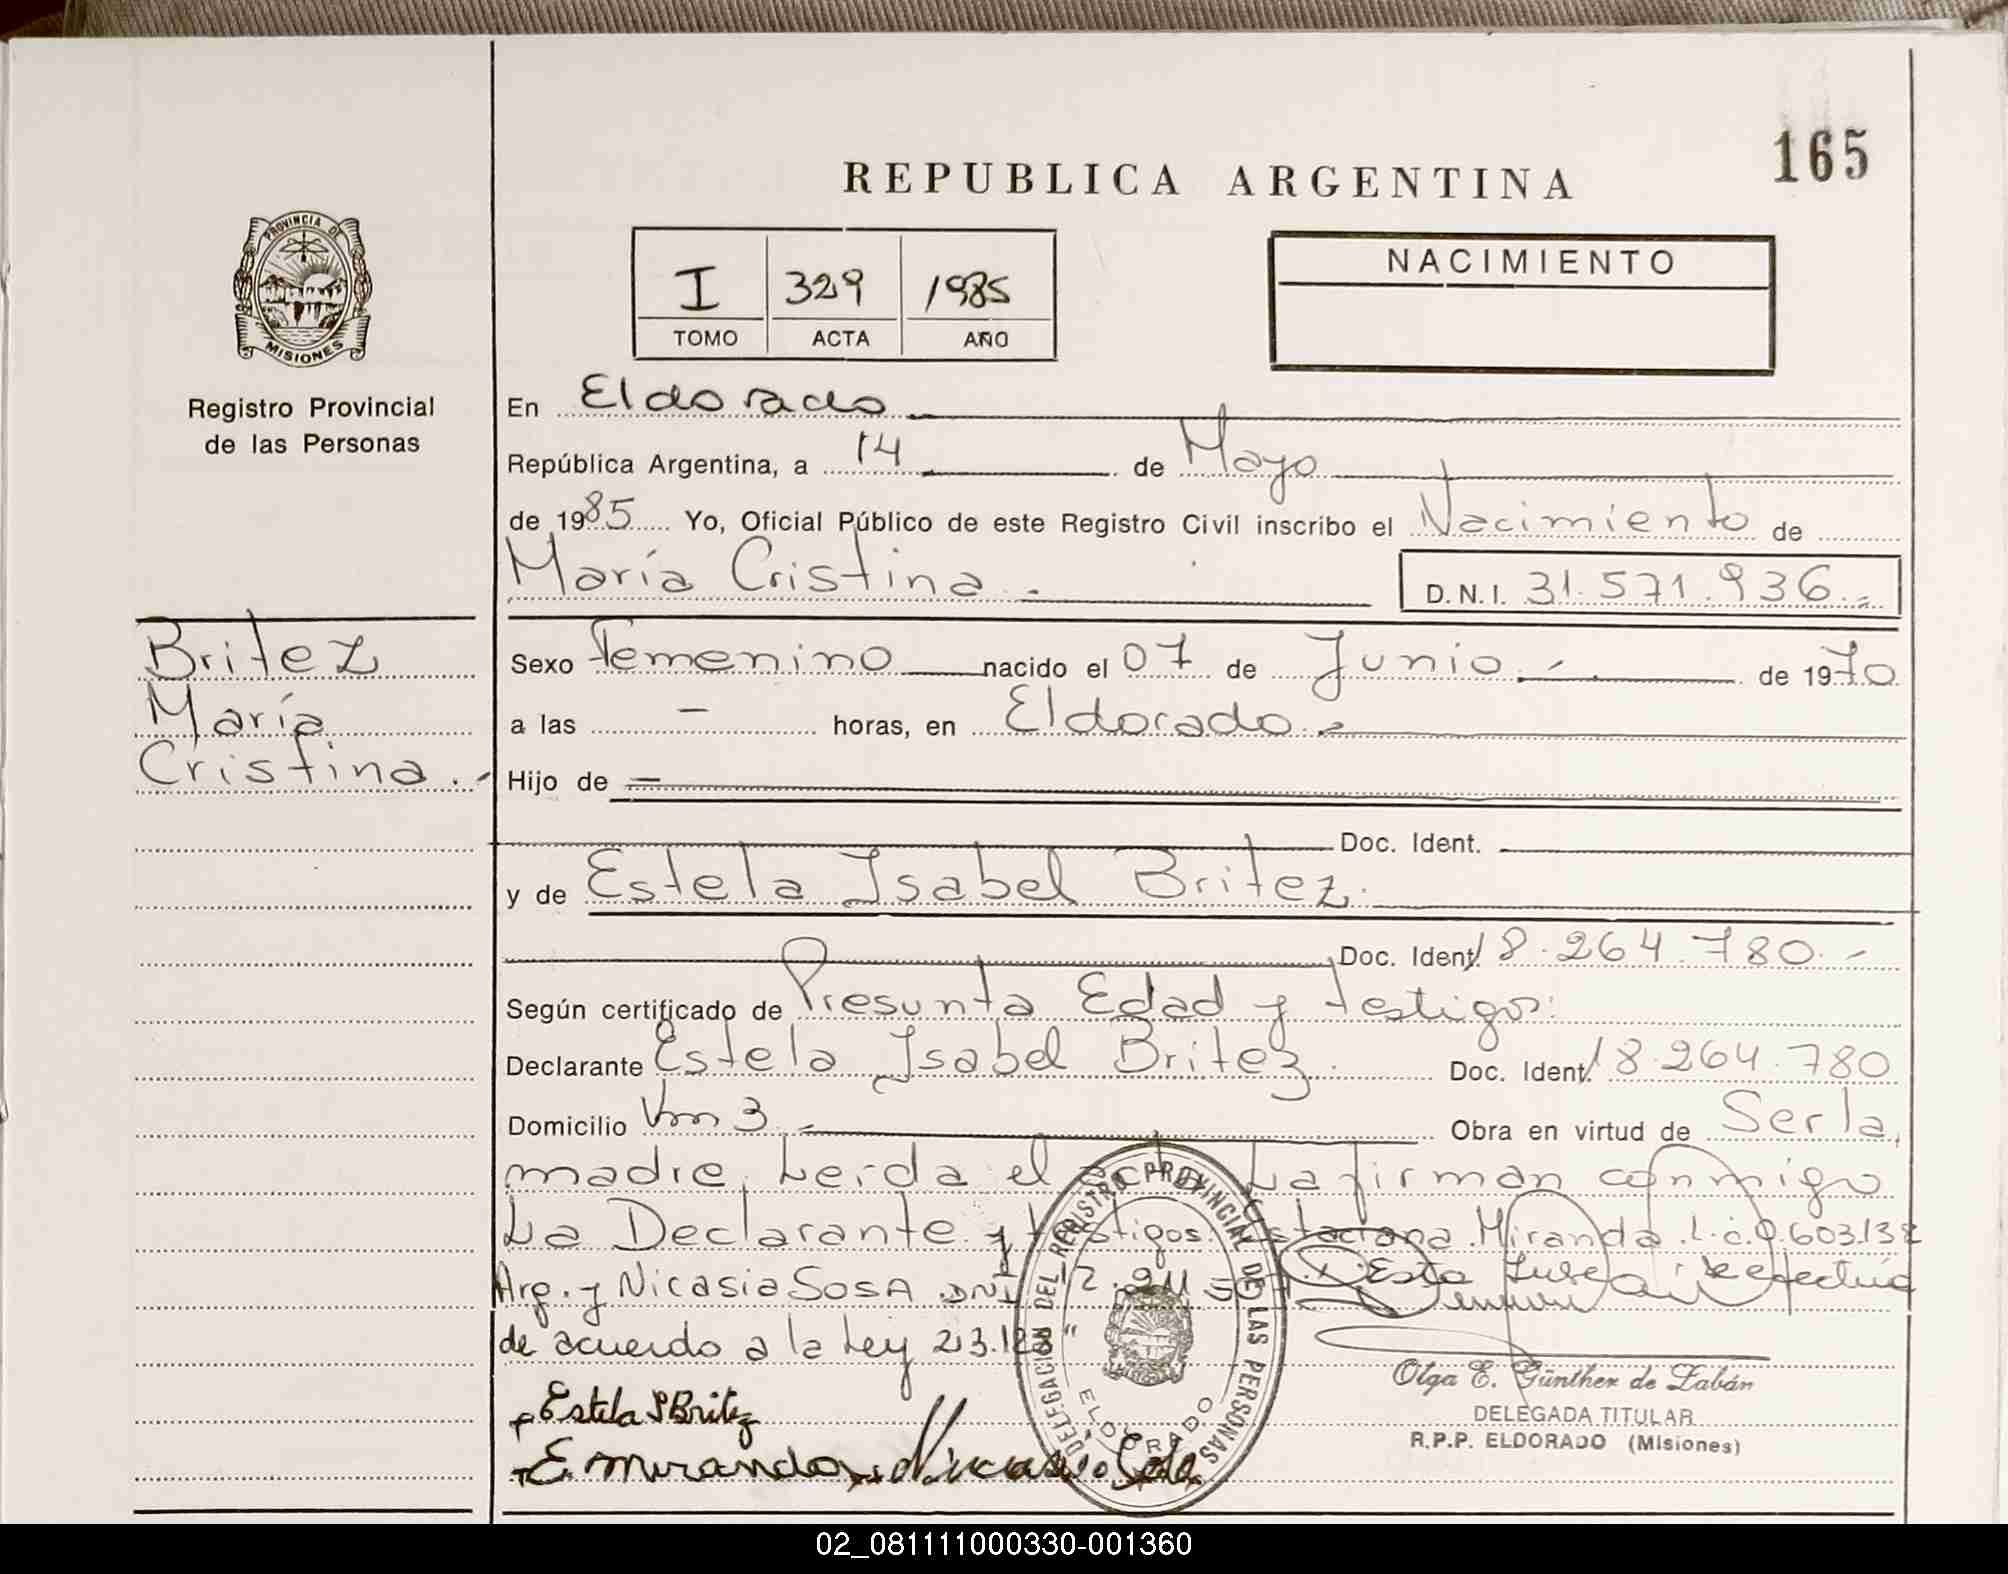 165
REPUBLICA ARGENTINA
PROVINCIA DE
MISIONES
Registro Provincial
de las Personas
I 329 1985
TOMO ACTA AÑO
NACIMIENTO
En Eldorado
República Argentina, a 14 de Mayo
de 1985 Yo, Oficial Público de este Registro Civil inscribo el Nacimiento de
María Cristina.-
D.N.I. 31.571.936.-
Britez
María
Cristina.-
Sexo Femenino nacido el 07 de Junio.- de 1970
a las - horas, en Eldorado.-
Hijo de =
Doc. Ident.
y de Estela Isabel Britez.
Doc. Ident. 18.264.780.-
Según certificado de Presunta Edad y testigos:
Declarante Estela Isabel Britez. Doc. Ident. 18.264.780
Domicilio Km 3.- Obra en virtud de Ser la,
madre, Leída el acta La firman conmigo
La Declarante y testigos. Miranda.L.C.
Arg. y Nicasia SOSA .DNI
de acuerdo a la Ley 23.128"
Estela I Britez
E Miranda Nicasia Sosa
DELEGACION DEL REGISTRO PROVINCIAL DE LAS PERSONAS
ELDORADO
Olga E. Günther de Zabán
DELEGADA TITULAR
R.P.P. ELDORADO (Misiones)
02_081111000330-001360